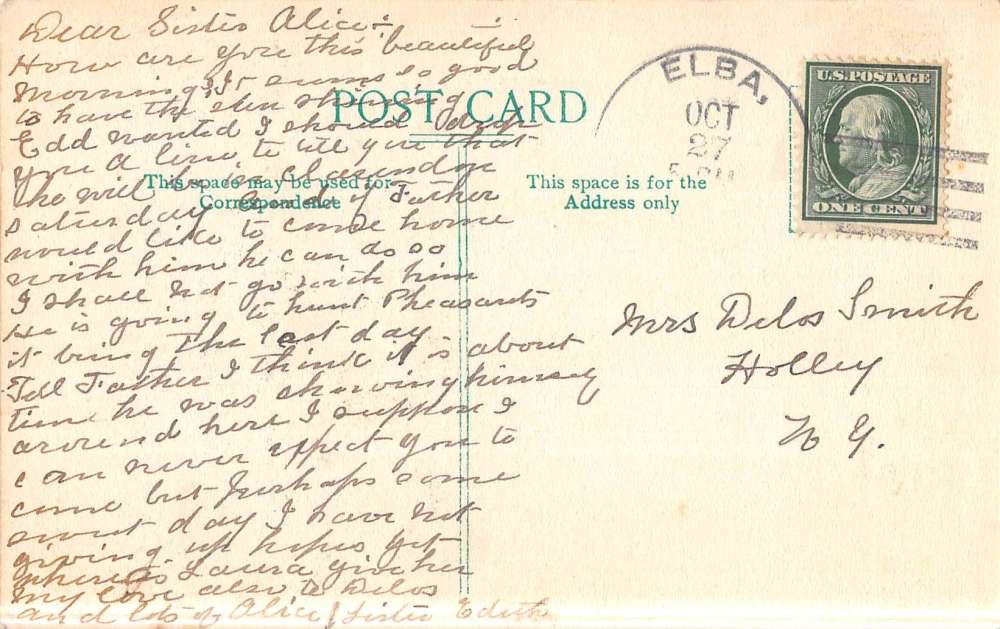 Dear Sister Alice :-
How are you this beautiful
morning. It seems so good
to have the sun shining
Edd wanted I should drop
you a line to tell you that
he will be in Clarendon
saturday and if Father
would like to come home
with him he can do so
I shall not go with him
He is going to hunt Pheasants
it being the last day
Tell Father I think it is about
time he was showing himself
around here I suppose I
can never expect you to
come but perhaps some
sweet day I have not
giving up hopes yet
where is Laura give her
my love also to Delos
and lots of Alice / Sister Edith
POST CARD
This space may be used for
Correspondence
This space is for the
Address only
ELBA,
OCT
27
U.S. POSTAGE
ONE CENT
Mrs Delos Smith
Holley
N Y.